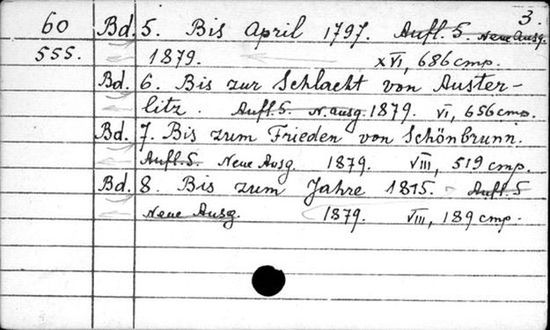 3.
60 Bd. 5. Bis April 1797. Aufl. 5. Neue Ausg.
555. 1879. XVI, 686 cmp.
Bd. 6. Bis zur Schlacht von Auster-
litz. Aufl. 5. N. Ausg. 1879. VI, 656 cmp.
Bd. 7. Bis zum Frieden von Schönbrunn.
Aufl. 5. Neue Ausg. 1879. VIII, 519 cmp.
Bd. 8. Bis zum Jahre 1815. Aufl. 5
Neue Ausg. 1879. VIII, 189 cmp.